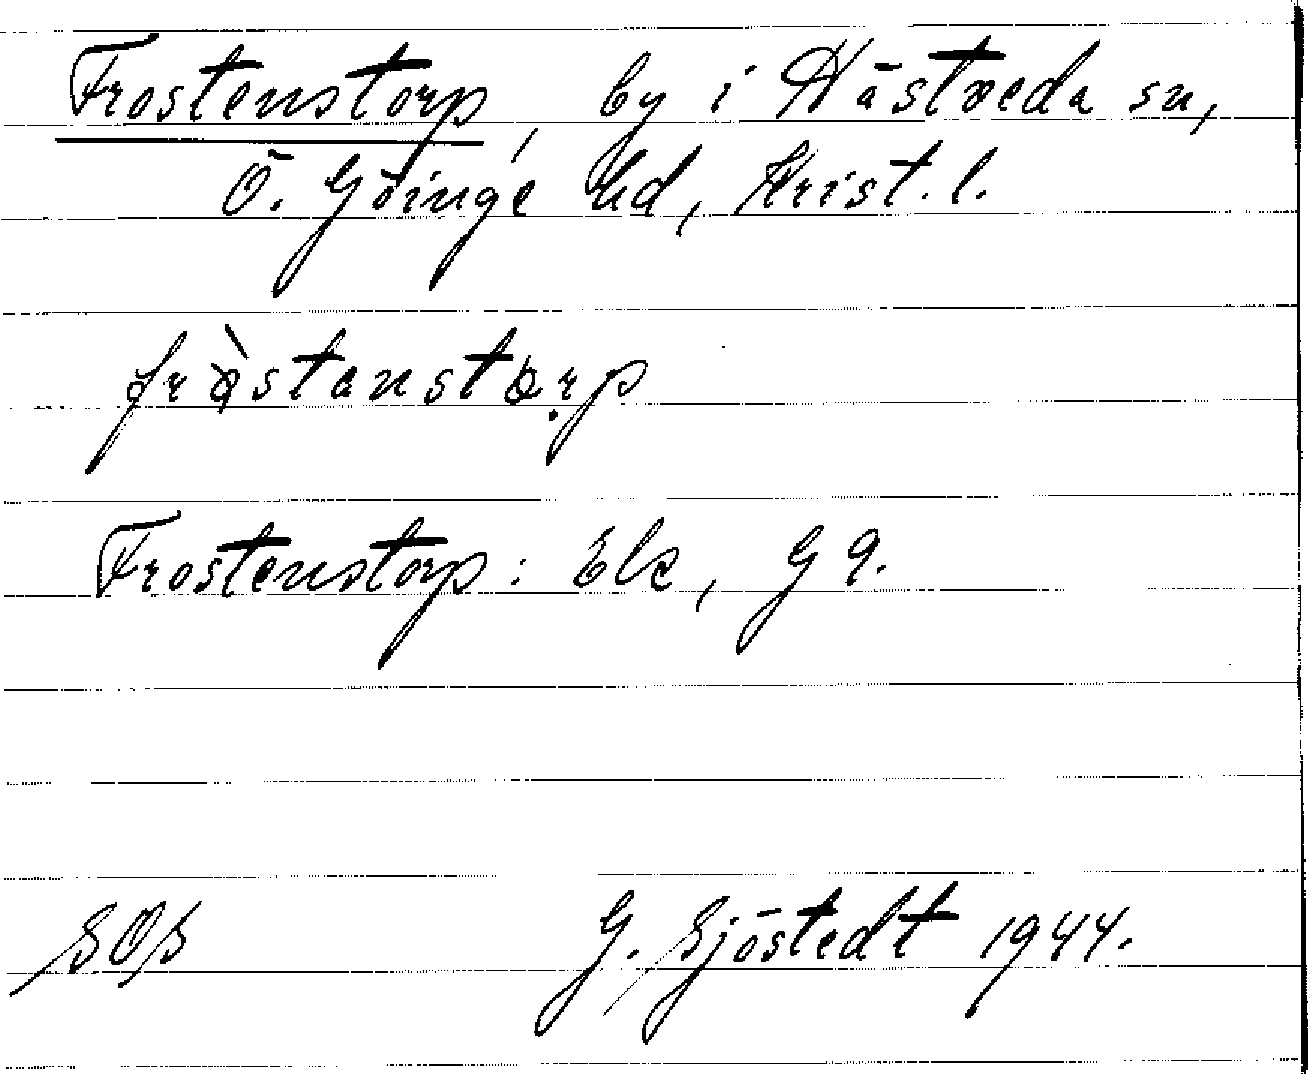 Frostenstorp, by i Hästveda sn,
Ö. Göinge hd, Krist. l.
Frostenstorp: Ek, G 9.
SOS G. Sjöstedt 1944.